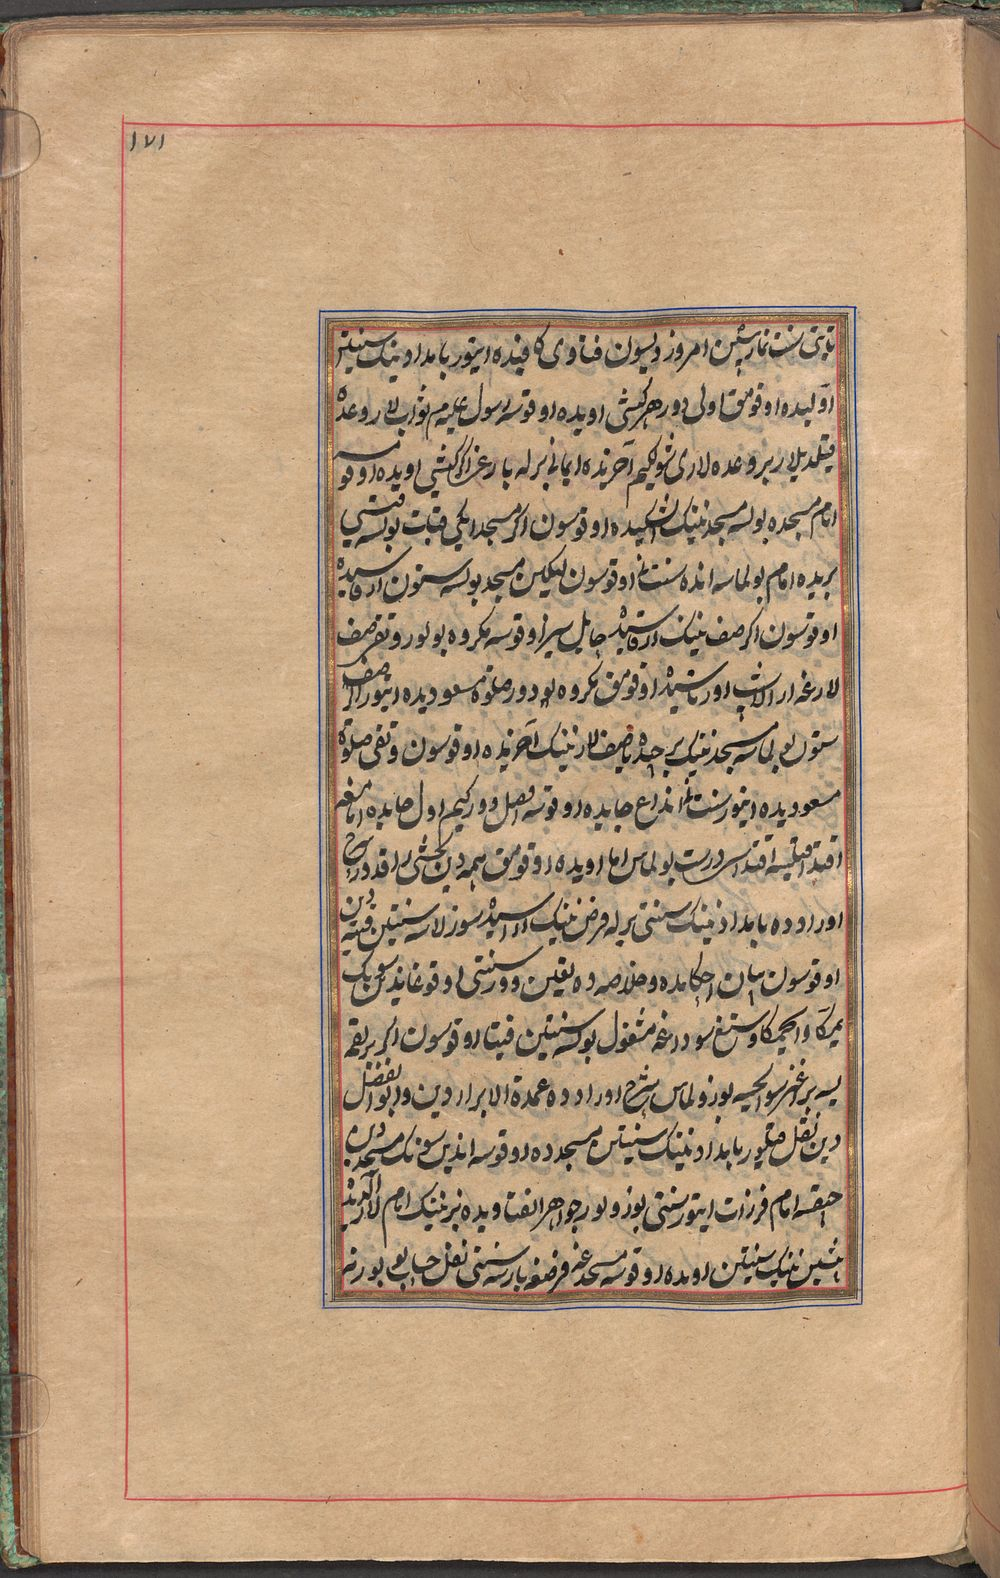 ۱۷۱
تا یتی سنت نماز پیشین امروز دیسون فتاوی کافیده ایتور بامدادنینک سنتین
اولیده اوقومق اولی دور هر کیشی اویده اوقوسه رسول علیه م ثواب لار وعده
قیلدیلار بر وعده لاری شولکیم آخرینده ایمانی برله بارغای اکر کیشی اویده اوقومسه
امام مسجده بولسه مسجدنینک ایشیکیده اوقوسون اکر مسجد ایکی قبات بولسه قیشی
بریده امام بولماسه انده سنت نی اوقوسون لیکین مسجد بولسه ستون ارقاسیده
اوقوسون اکر صف نینک ارقاسیده حایل سیز اوقوسه مکروه بولور و تقی صف
لارغه ارالاشیپ اورتاسیده اوقومق مکروه بولدور صلوة مسعودیده ایتور اکر صف
ستون بولماسه مسجدنینک بر جیده یا صف لارنینک آخریده اوقوسون و تقی صلوة
مسعودیده ایتور سنت نی انداغ جایده اوقوسه افضل دور کیم اول جایده امامغه
اقتدا قیلسه اقتداسی درست بولماس اما اویده اوقومق همه دین یخشی راقدور شرح
اوراد ده بامدادنینک سنتی برله فرض نینک اراسیده سوزلاسه سنتین قیته دین
اوقوسون بیان احکامده و خلاصه ده یقین دور سنتی اوقوغاندین سونک
یمیکا و ایچمیکا و ستغ سوداغه مشغول بولسه سنتین قیتا اوقوسون اکر بر لقمه
یسه بر غرت سو ایچسه بوزولماس شرح اوراد ده عمدة الابرار دین و ابوالفضل
دین نقل قیلیور بامدادنینک سنتین مسجدده اوقوسه اندین سونک مسجددین
چیقسه امام فرزات ایتور سنتی بوزولور جواهر الفتاویده بزنینک امام لاریمیز
پیشین نینک سنتین اویده اوقوسه مسجدغه فرضغه بارسه سنتی نفل حساب بولورنه